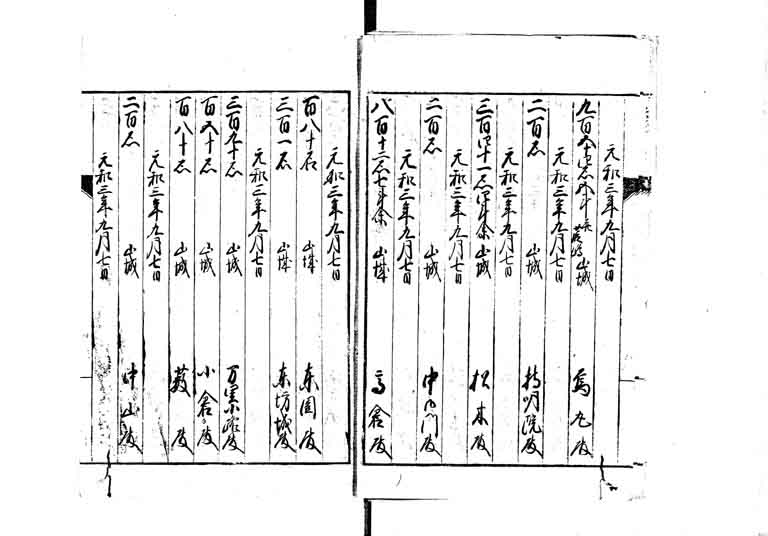 元和三年九月七日
九百 石 斗 山城 烏丸殿
元和三年九月七日
二百石 山城 持明院殿
元和三年九月七日
三百四十一石四斗余 山城 松木殿
元和三年九月七日
二百石 山城 中御門殿
元和三年九月七日
八百十二石七斗余 山城 高倉殿
元和三年九月七日
百八十石 山城 東園殿
三百一石 山城 東坊城殿
元和三年九月七日
三百九十石 山城 万里小路殿
百五十石 山城 小倉殿
百八十石 山城 藪殿
元和三年九月七日
二百石 山城 中山殿
元和三年九月七日